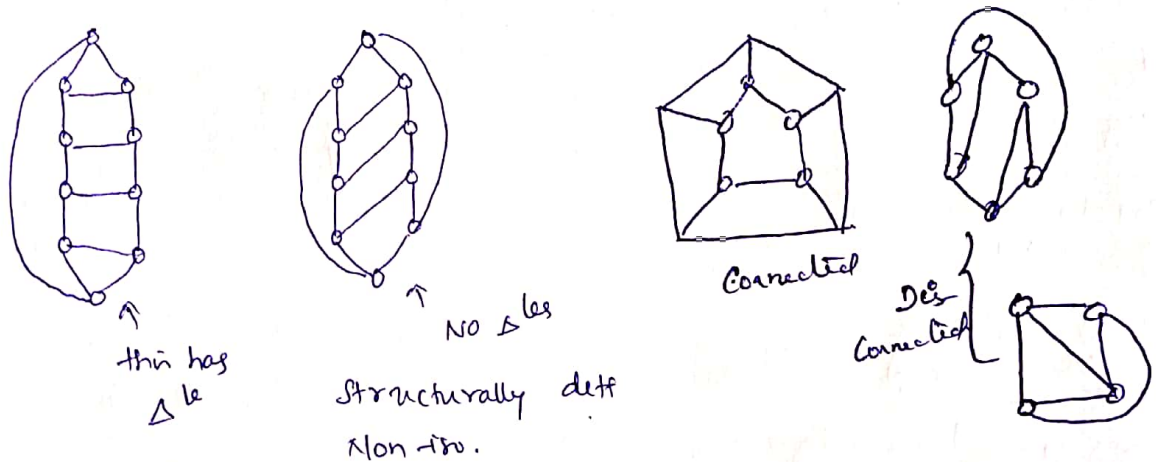 ↑
this has
Δ le
↑
NO Δ les
Structurally diff
Non-iso.
Connected
Dis
Connected